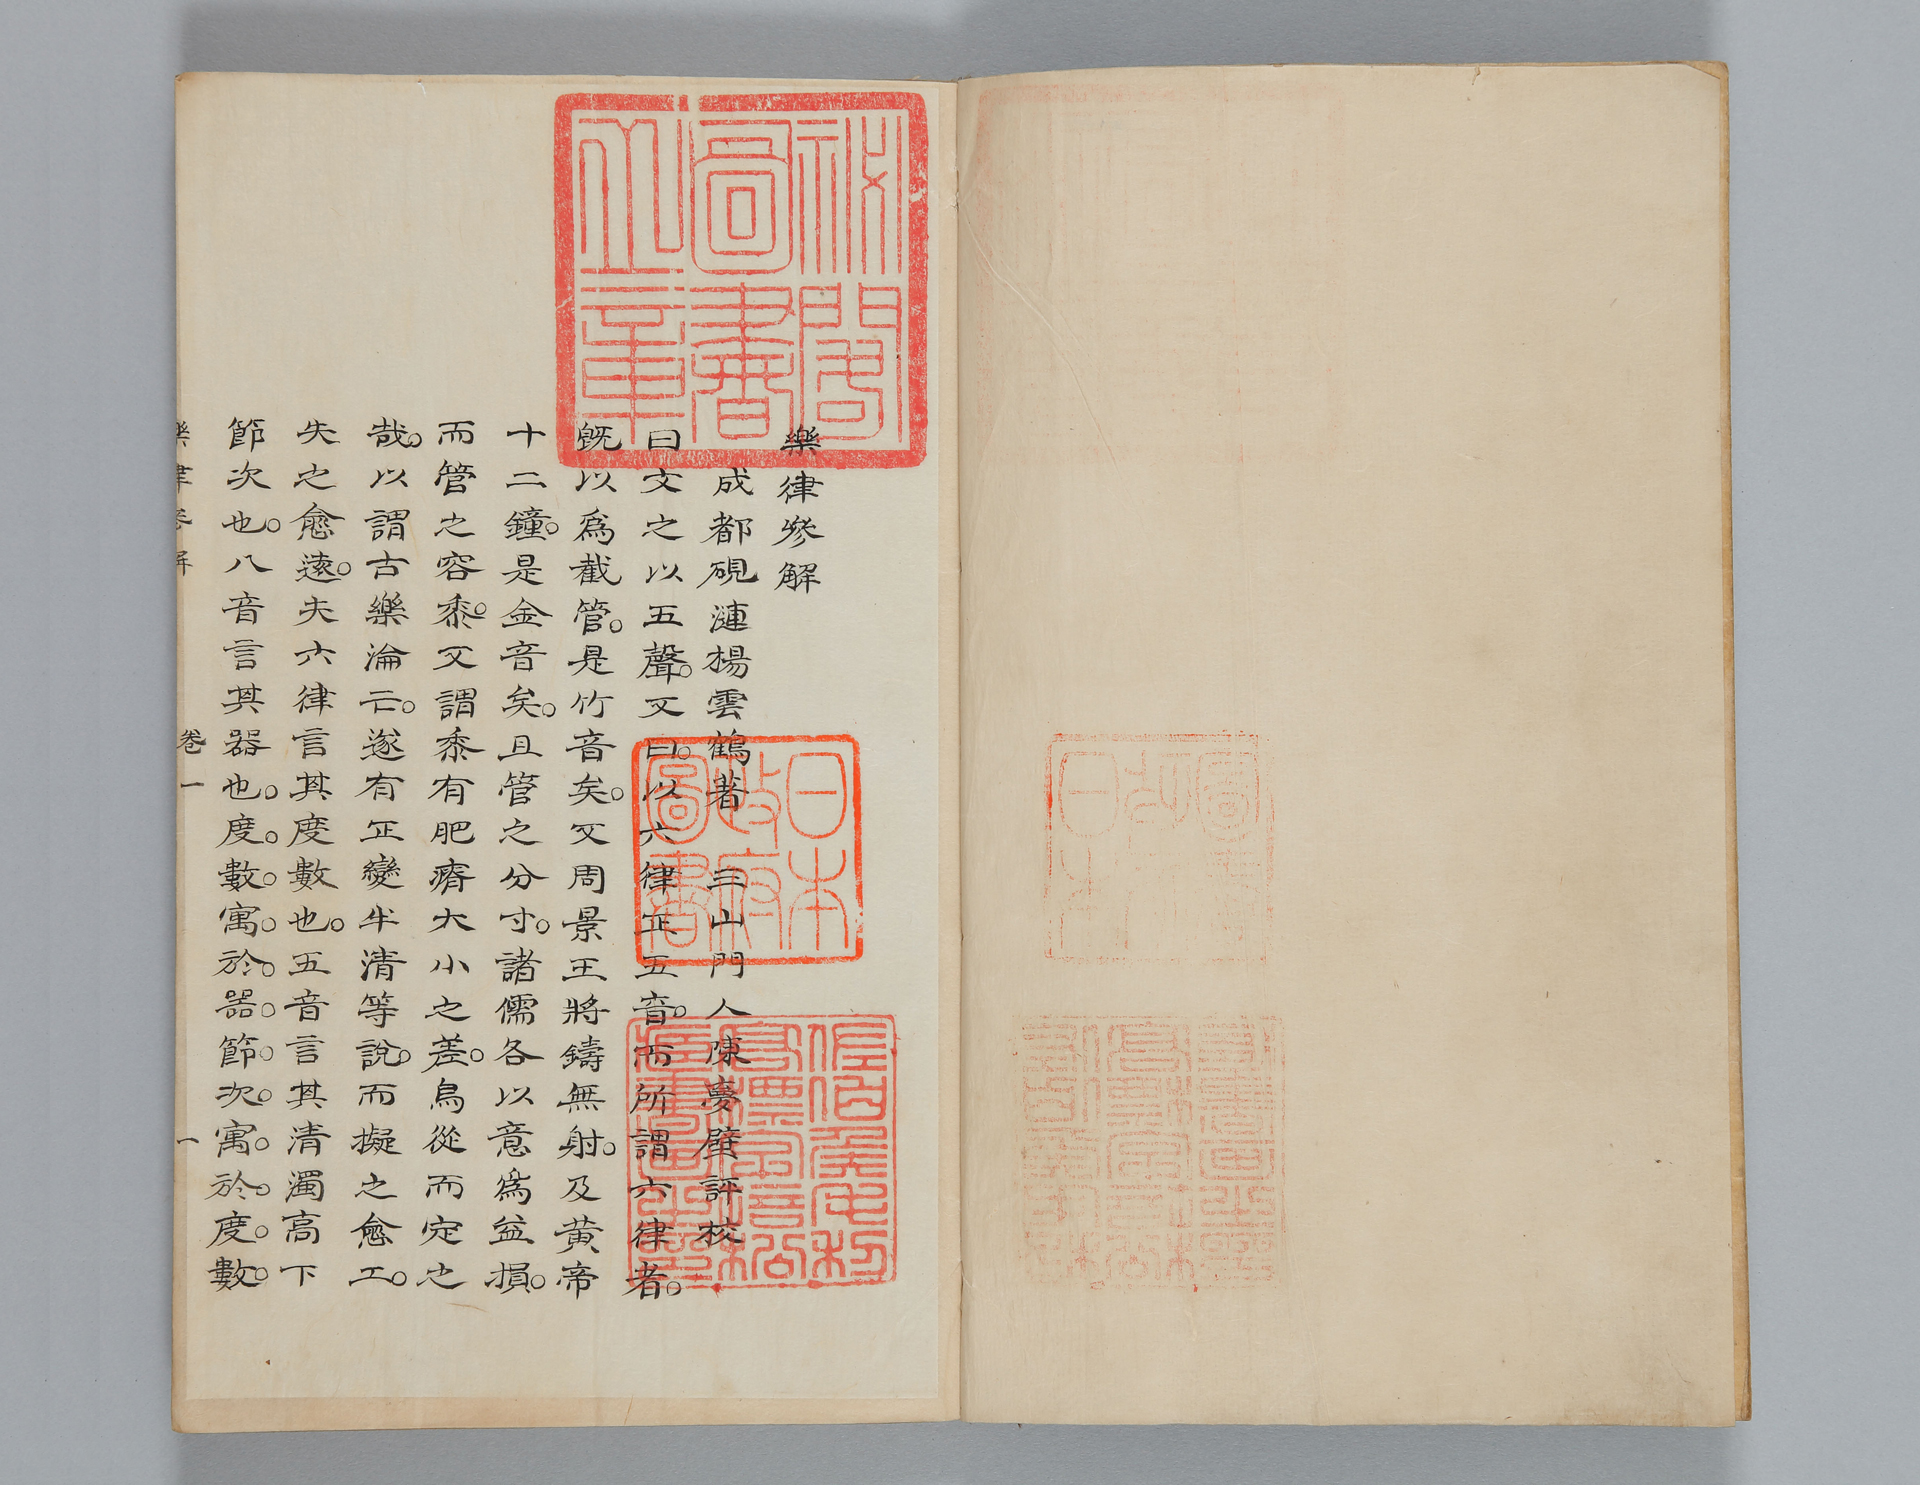 祕閣圖書之章
日本政府圖書
佐伯侯毛利高標字培松藏書畫之印
樂律參解
成都硯漣楊雲鶴著 三山門人陳夢璧評校
曰文之以五聲。又曰。以六律正五音。而所謂六律者。
旣以爲截管。是竹音矣。又周景王將鑄無射。及黃帝
十二鐘。是金音矣。且管之分寸。諸儒各以意爲益損。
而管之容黍。又謂黍有肥瘠大小之差。烏從而定之
哉。以謂古樂淪亡。遂有正變半清等說。而擬之愈工。
失之愈遠。夫六律言其度數也。五音言其清濁高下
節次也。八音言其器也。度。數。寓。於。器。節。次。寓。於。度。數。
樂律參解 卷一 一